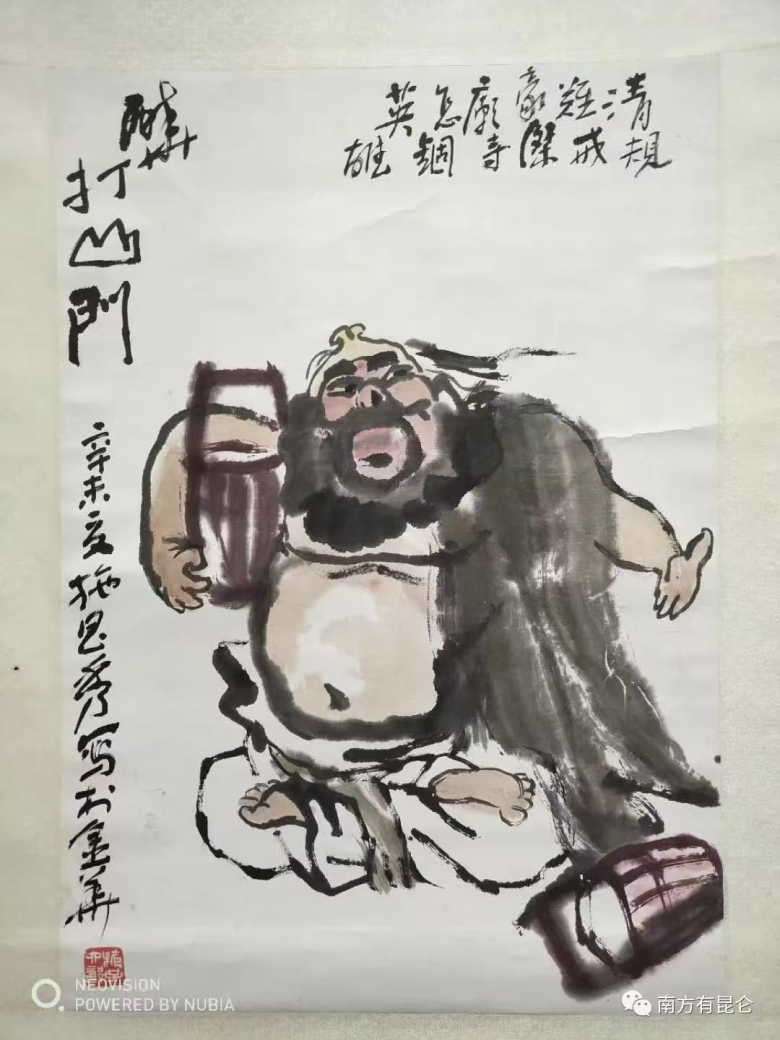 清規
难戒
豪傑
廟寺
怎錮
英雄
醉打山門
辛未夏 写於金華
NEOVISION
POWERED BY NUBIA
南方有昆仑